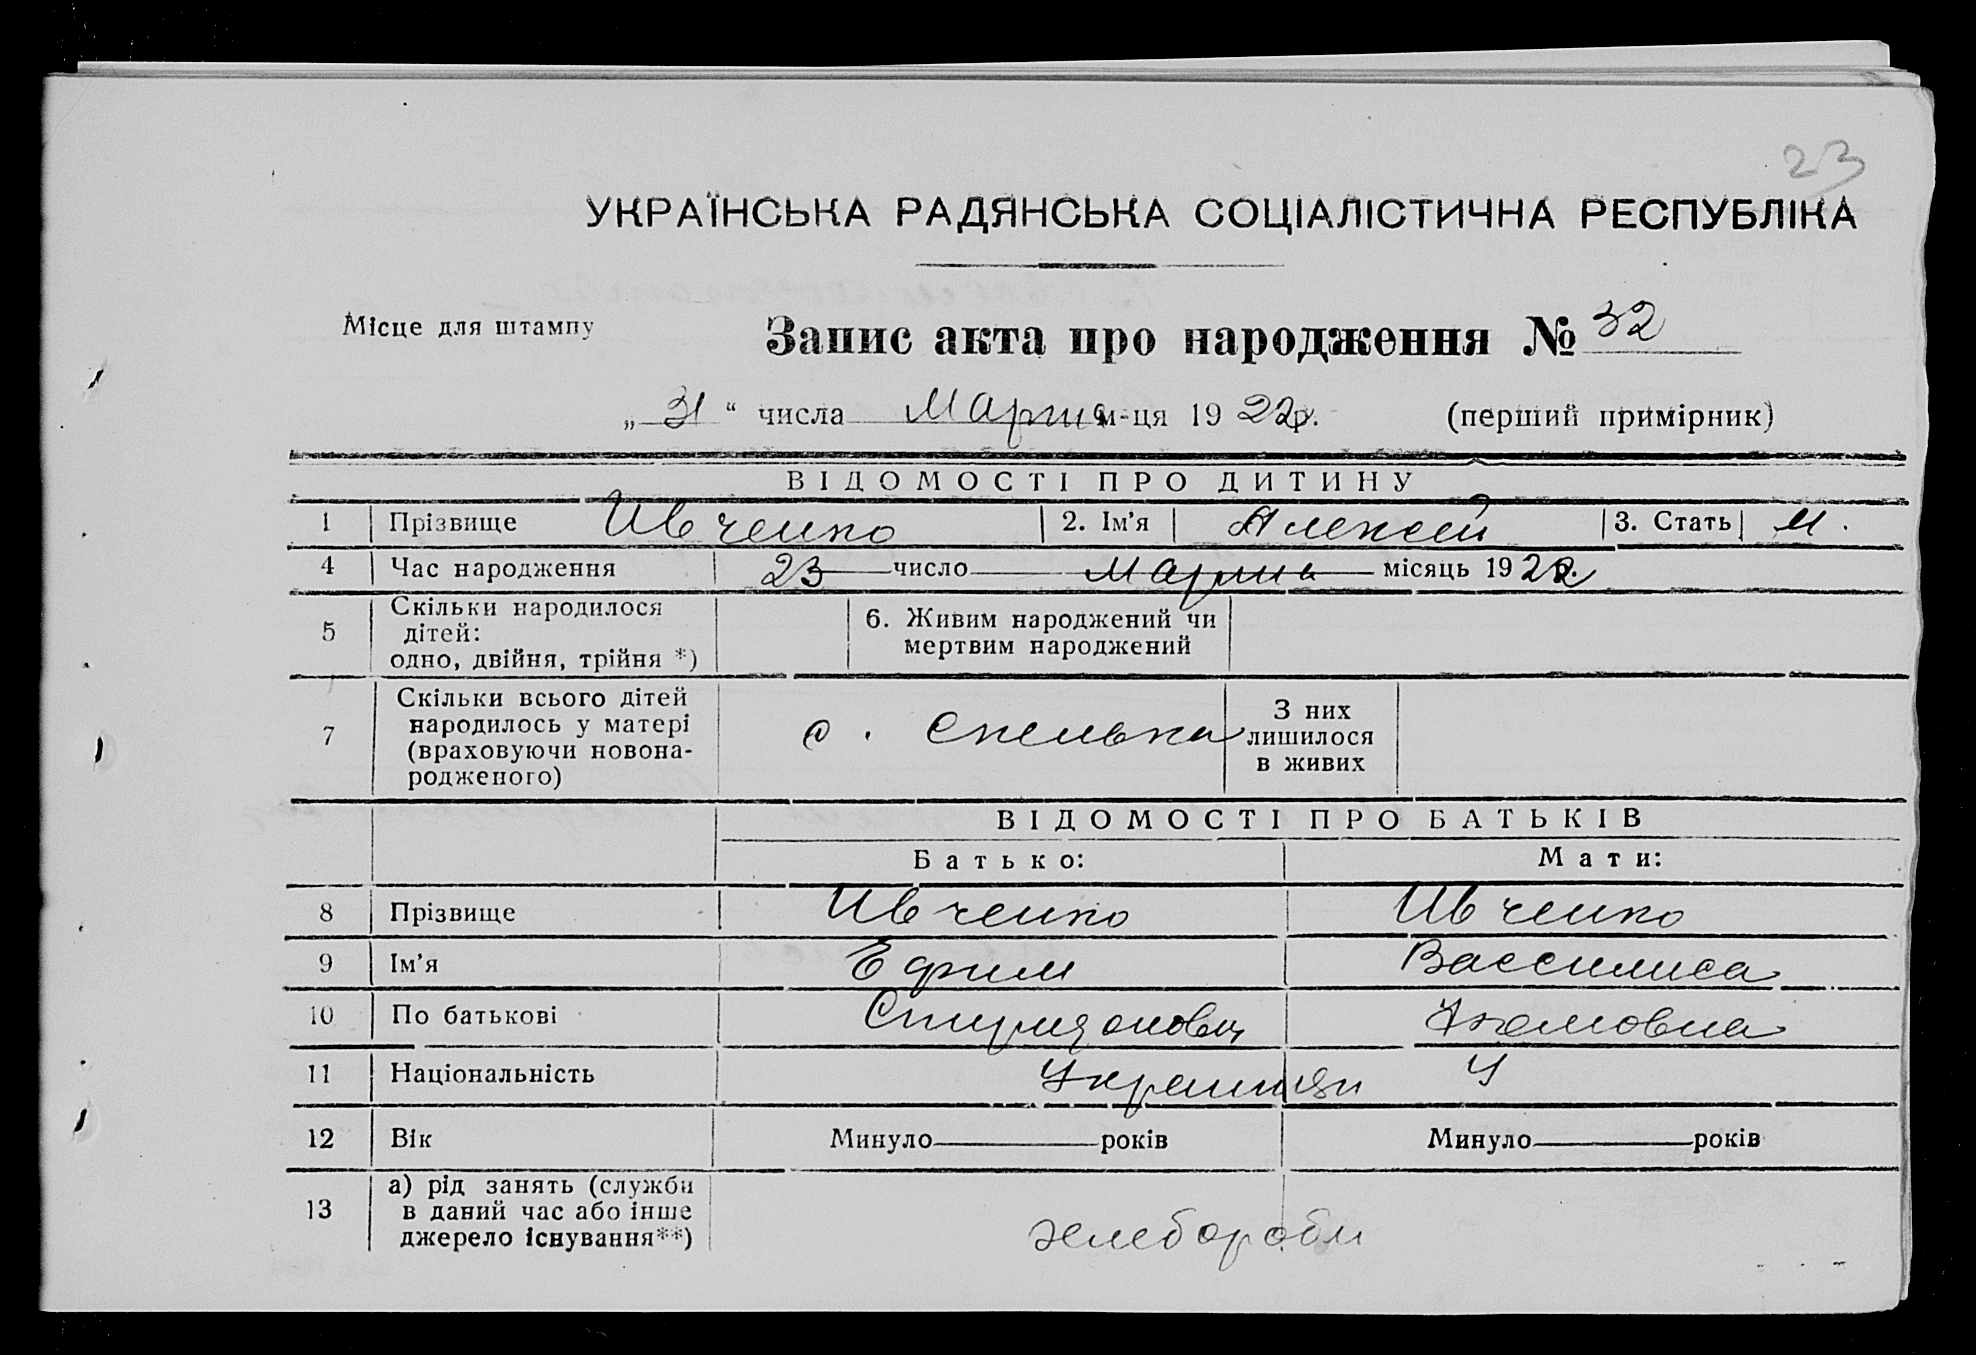 23
УКРАЇНСЬКА РАДЯНСЬКА СОЦІАЛІСТИЧНА РЕСПУБЛІКА
Місце для штампу
Запис акта про народження № 32
„ 31 “ числа Марта м-ця 19 22 р. (перший примірник)
ВІДОМОСТІ ПРО ДИТИНУ
1 Прізвище Ивченко 2. Ім’я Алексей 3. Стать М.
4 Час народження 23 число Марта місяць 19 22 р.
5 Скільки народилося дітей: одно, двійня, трійня *) 6. Живим народжений чи мертвим народжений
7 Скільки всього дітей народилось у матері (враховуючи новонародженого) с. З них лишилося в живих
ВІДОМОСТІ ПРО БАТЬКІВ
Батько: Мати:
8 Прізвище Ивченко Ивченко
9 Ім’я Ефим Вассилиса
10 По батькові Спиридонович
11 Національність У
12 Вік Минуло років Минуло років
13 а) рід занять (служби в даний час або інше джерело існування**) хлеборобы